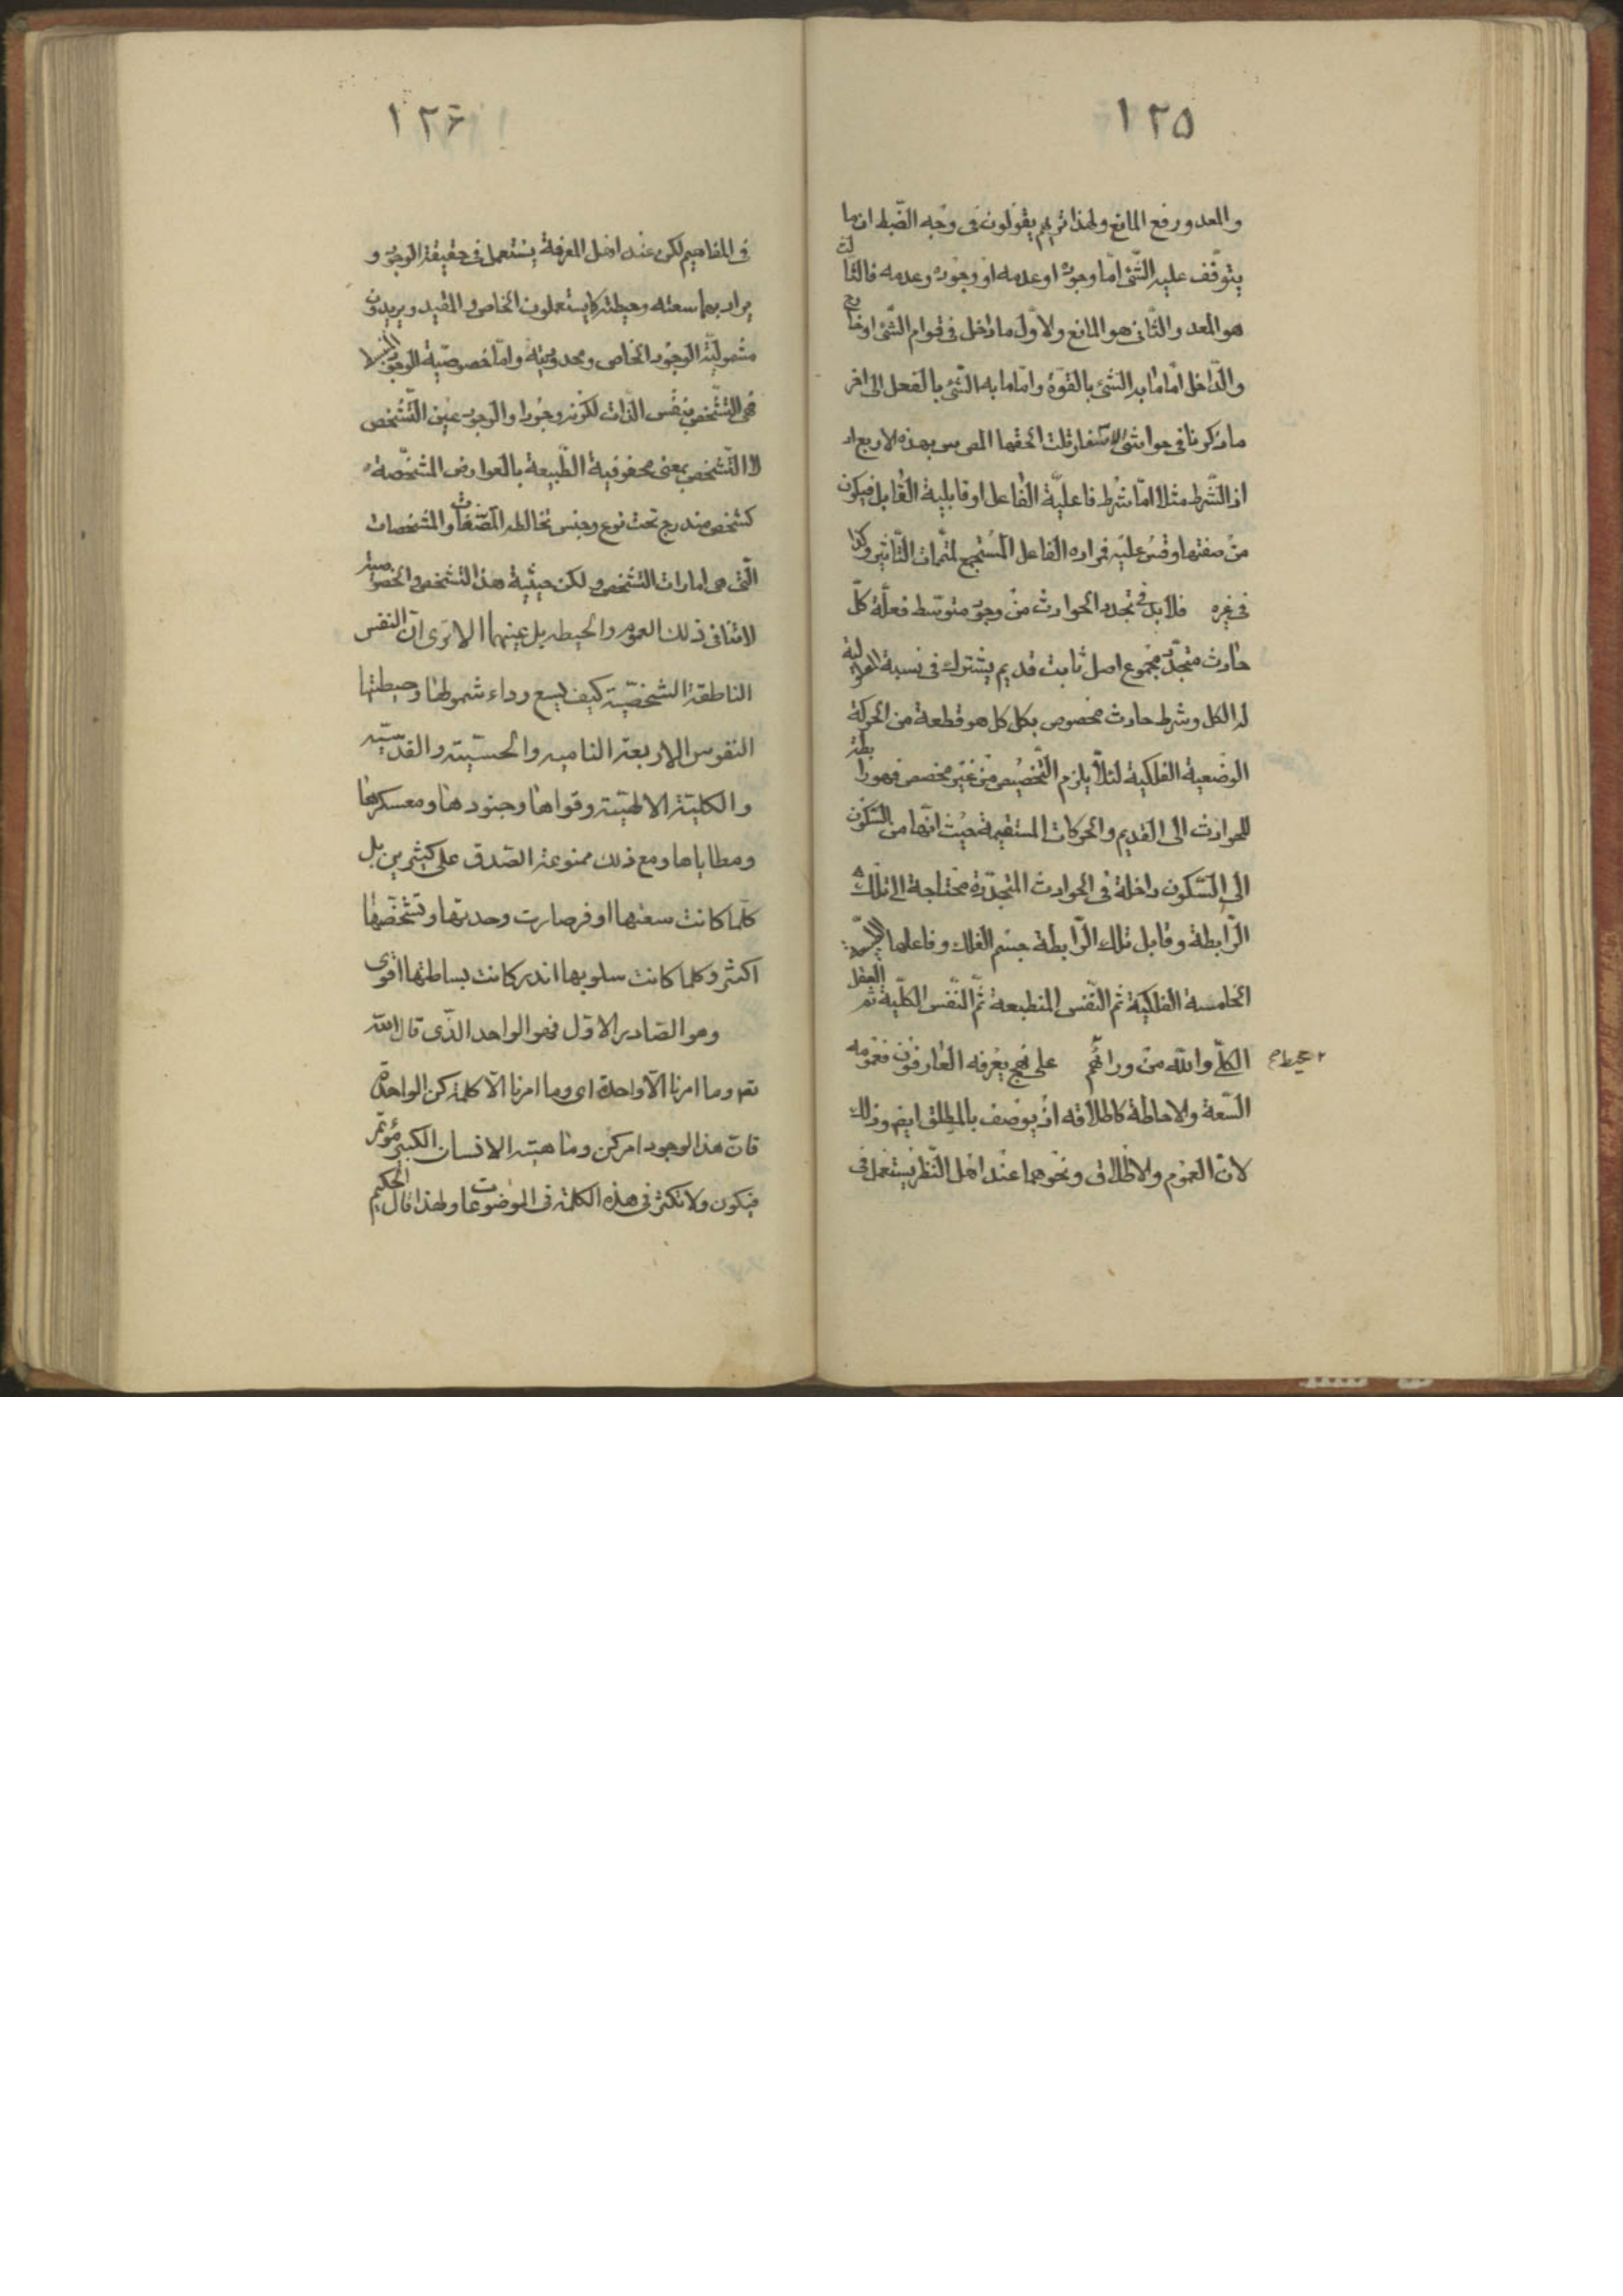 ١٢٥
والمعد ورفع المانع ولهذا تريهم يقولون فى وجه الضبط ان ما
يتوقف عليه الشئ امّا وجوده او عدمه او وجوده وعدمه فالثالث
هو المعد والثانى هو المانع والاوّل ما داخل فى قوام الشئ او خارج
والداخل امّا ما به الشئ بالقوة وامّا ما به الشئ بالفعل الى اخر
ما ذكروا فى حواشى الاسفار قلت الحقها بهذه الاربع اد
اذ الشرط مثلا امّا شرط فاعليّة الفاعل او قابلية القابل فيكون
من صفتها وقس عليه فمراده الفاعل المستجمع لمتمّمات التأثير وكذا
فى غيره فلابدّ فى تجدد الحوادث من وجود متوسط فعلّة كلّ
حادث متجدّد مجموع اصل ثابت قديم يشترك فى نسبة العلية
له الكل وشرط حادث مخصوص بكل كل هو قطعة من الحركة
الوضعية الفلكية لئلّا يلزم التخصيص من غير مخصص فهو رابطة
للحوادث الى القديم والحركات المستقيمة حيث انّها من السّكون
الى السّكون داخلة فى الحوادث المتجدّدة محتاجة الى تلك
الرّابطة وقابل تلك الرّابطة جسم الفلك وفاعلها الطبيعة
الخامسة الفلكيّة ثم النّفس المنطبعة ثمّ النّفس الكلّية ثم العقل
الكلّى والله من ورائهم على نهج يعرفه العارفون فعمومه
محيط
السّعة والاحاطة كاطلاقه اذ يوصف بالمطلق ايضا وذلك
لانّ العموم والاطلاق ونحوهما عند اهل النّظر يستعمل فى
١٢۶
فى المفاهيم لكن عند اهل المعرفة يستعمل فى حقيقة الوجود و
يراد بهما سعته وحيطته كما يستعملون الخاص والمقيد ويريدون
مشموليّة الوجود الخاص ومحدوديته وامّا خصوصيّة الوجود
فهى التشخص بنفس الذات لكونه وجودا والوجود عين التشخص
لا التّشخص بمعنى محفوفية الطّبيعة بالعوارض المشخّصة
كشخص مندرج تحت نوع وجنس تخالطه المصنّفات والمشخصات
الّتى هى امارات التشخص ولكن حيثية هذا التشخص والخصوصية
لا تنافى ذلك العموم والحيطه بل عينهما الا ترى انّ النفس
الناطقة الشخصيّة كيف يسع رداء شمولها وحيطتها
النفوس الاربعة الناميه والحسّيّة والقدسيّه
والكليّة الالهيّة وقواها وجنودها ومعسكرها
ومطاياها ومع ذلك ممنوعة الصّدق على كثيرين بل
كلّما كانت سعتها اوفر صارت وحدتها وتشخّصها
اكثر وكلما كانت سلوبها اندر كانت بساطتها اقوى
وهو الصّادر الاوّل فهو الواحد الّذى قال الله
تعم وما امرنا الّا واحدة اى وما امرنا الّا كلمة كن الواحدة
فانّ هذا الوجود امر كن وماهيته الانسان الكبير مؤتمر
فيكون ولا تكثر فى هذه الكلمة فى الموضوعات ولهذا قال الحكيم